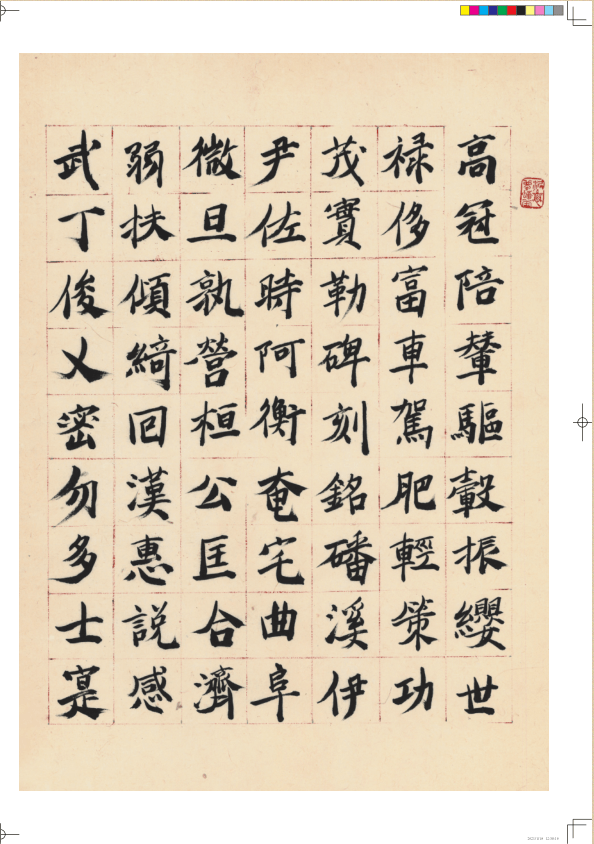 高冠陪輦驅轂振纓世
禄侈富車駕肥輕策功
茂實勒碑刻銘磻溪伊
尹佐時阿衡奄宅曲阜
微旦孰營桓公匡合濟
弱扶傾綺回漢惠説感
武丁俊乂密勿多士寔